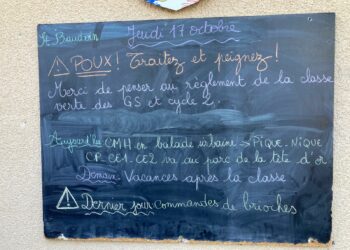 St Baudoin
Jeudi 17 octobre
⚠ POUX! Traitez et peignez!
Merci de penser au règlement de la classe
verte des GS et cycle 2.
Aujourd'hui CMH en balade urbaine → PIQUE-NIQUE
CP CE1 CE2 va au parc de la tete d'or
Demain Vacances après la classe
⚠ Dernier jour commandes de brioches